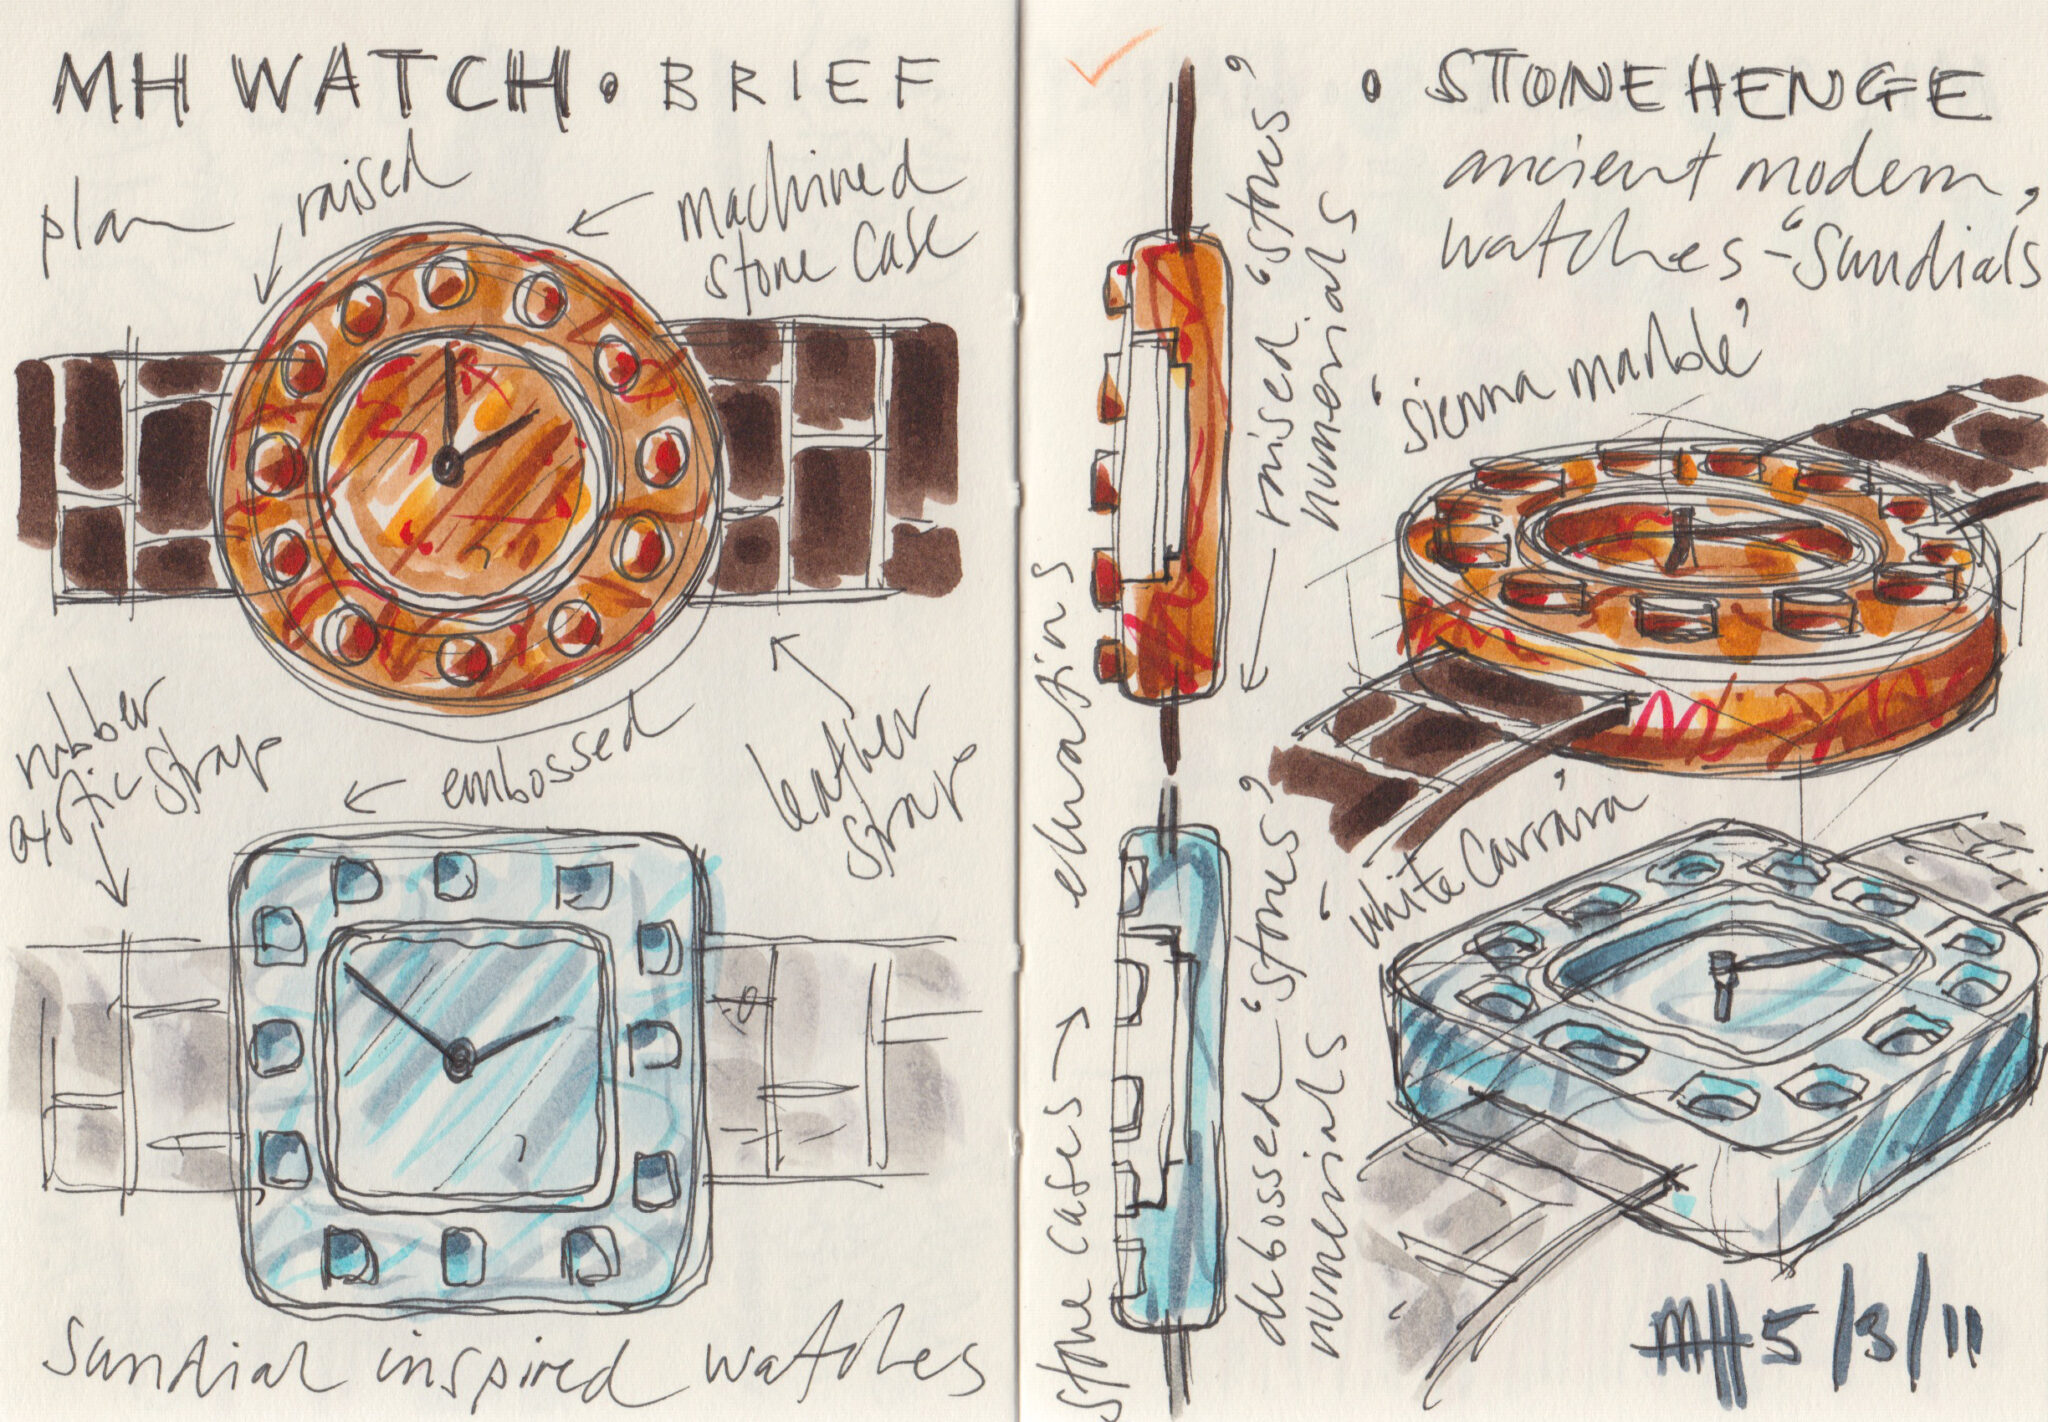 MH WATCH • BRIEF
plan
raised
machined
stone case
rubber
strap
embossed
leather
strap
sundial inspired watches
• STONEHENGE
ancient modern
watches - 'Sundials'
raised 'stones'
numerials
'sienna marble'
elevations
stone cases →
debossed 'stones'
numerials
'white Carrára'
MH 5/3/11